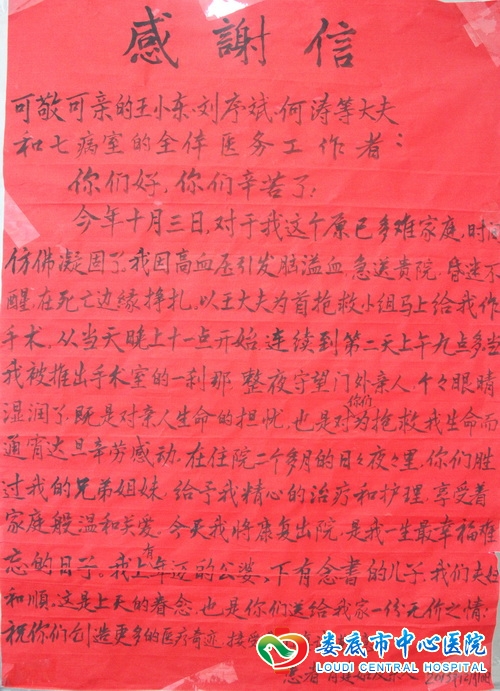 感謝信
可敬可亲的王小东、刘序斌、何涛等大夫
和七病室的全体医务工作者：
你们好，你们辛苦了！
今年十月三日，对于我这个原已多难家庭，时间
仿佛凝固了，我因高血压引发脑溢血，急送贵院，昏迷不
醒，在死亡边缘挣扎，以王大夫为首抢救小组马上给我作
手术，从当天晚上十一点开始，连续到第二天上午九点多当
我被推出手术室的一刹那，整夜守望门外亲人，个々眼睛
湿润了，既是对亲人生命的担忧，也是对你们为抢救我生命而
通宵达旦辛劳感动，在住院二个多月的日々夜々里，你们胜
过我的兄弟姐妹，给予我精心的治疗和护理，享受着
家庭般温和关爱，今天我将康复出院，是我一生最幸福难
忘的日子。我上有年迈的公婆，下有念書的儿子，我们夫妇
和順，这是上天的眷念，也是你们送给我家一份无价之情，
祝你们创造更多的医疗奇迹，接受
患者
娄底市中心医院
LOUDI CENTRAL HOSPITAL